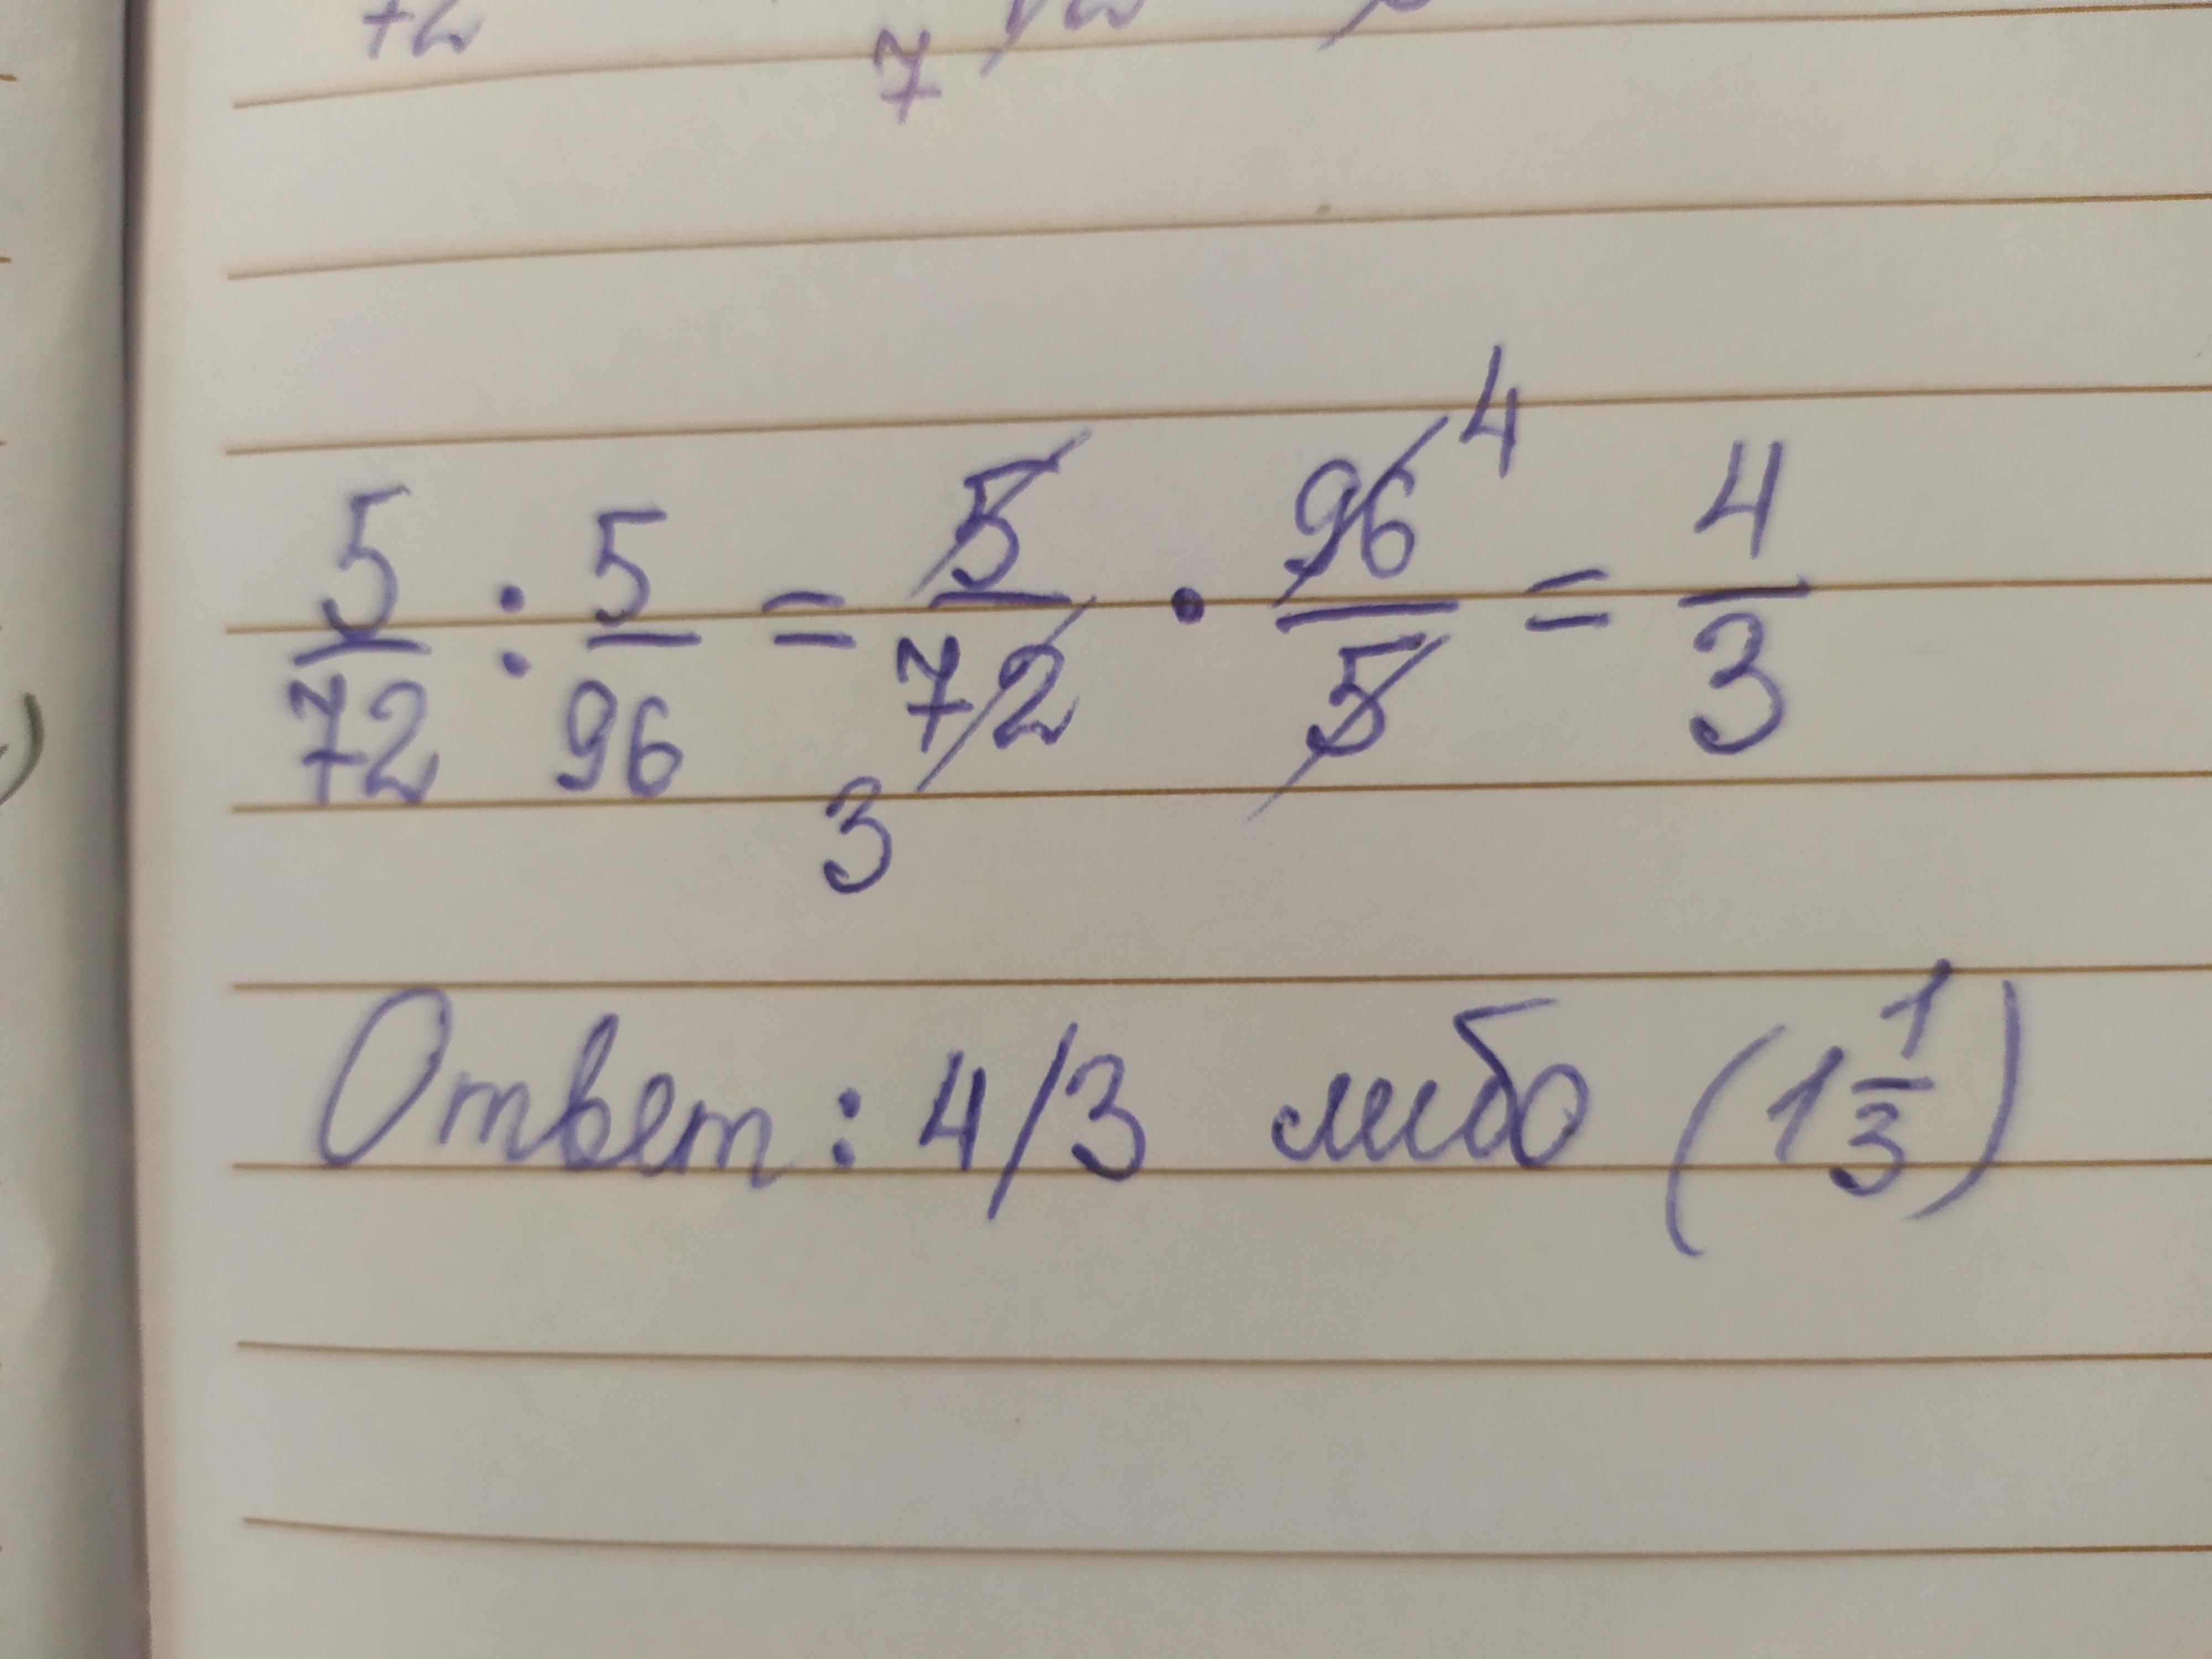 7
5/72 : 5/96 = 5/72 3 · 96/5 4 = 4/3
Ответ: 4/3 либо (1 1/3)